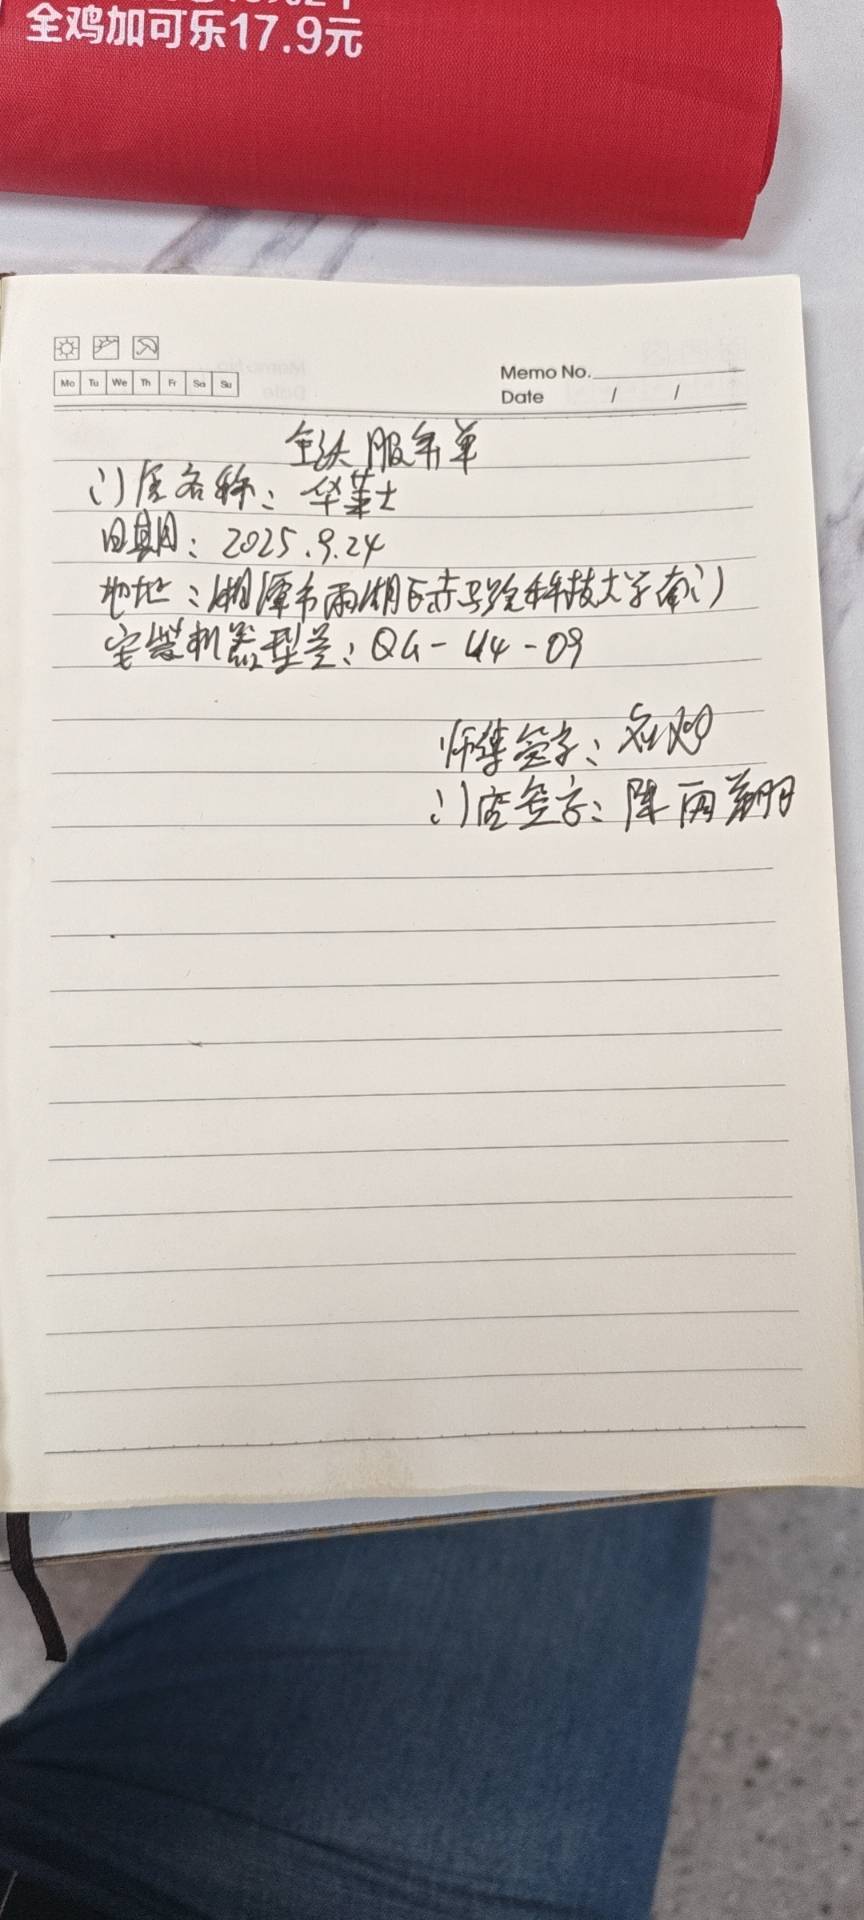 全鸡加可乐17.9元
Mo Tu We Th Fr Sa Su
Memo No.
Date / /
服务单
门店名称：华莱士
日期：2025.9.24
地址：湘潭市雨湖区赤马路科技大学南门
安装机器型号：QG-U4-09
师傅签字：
门店签字：陈雨翔